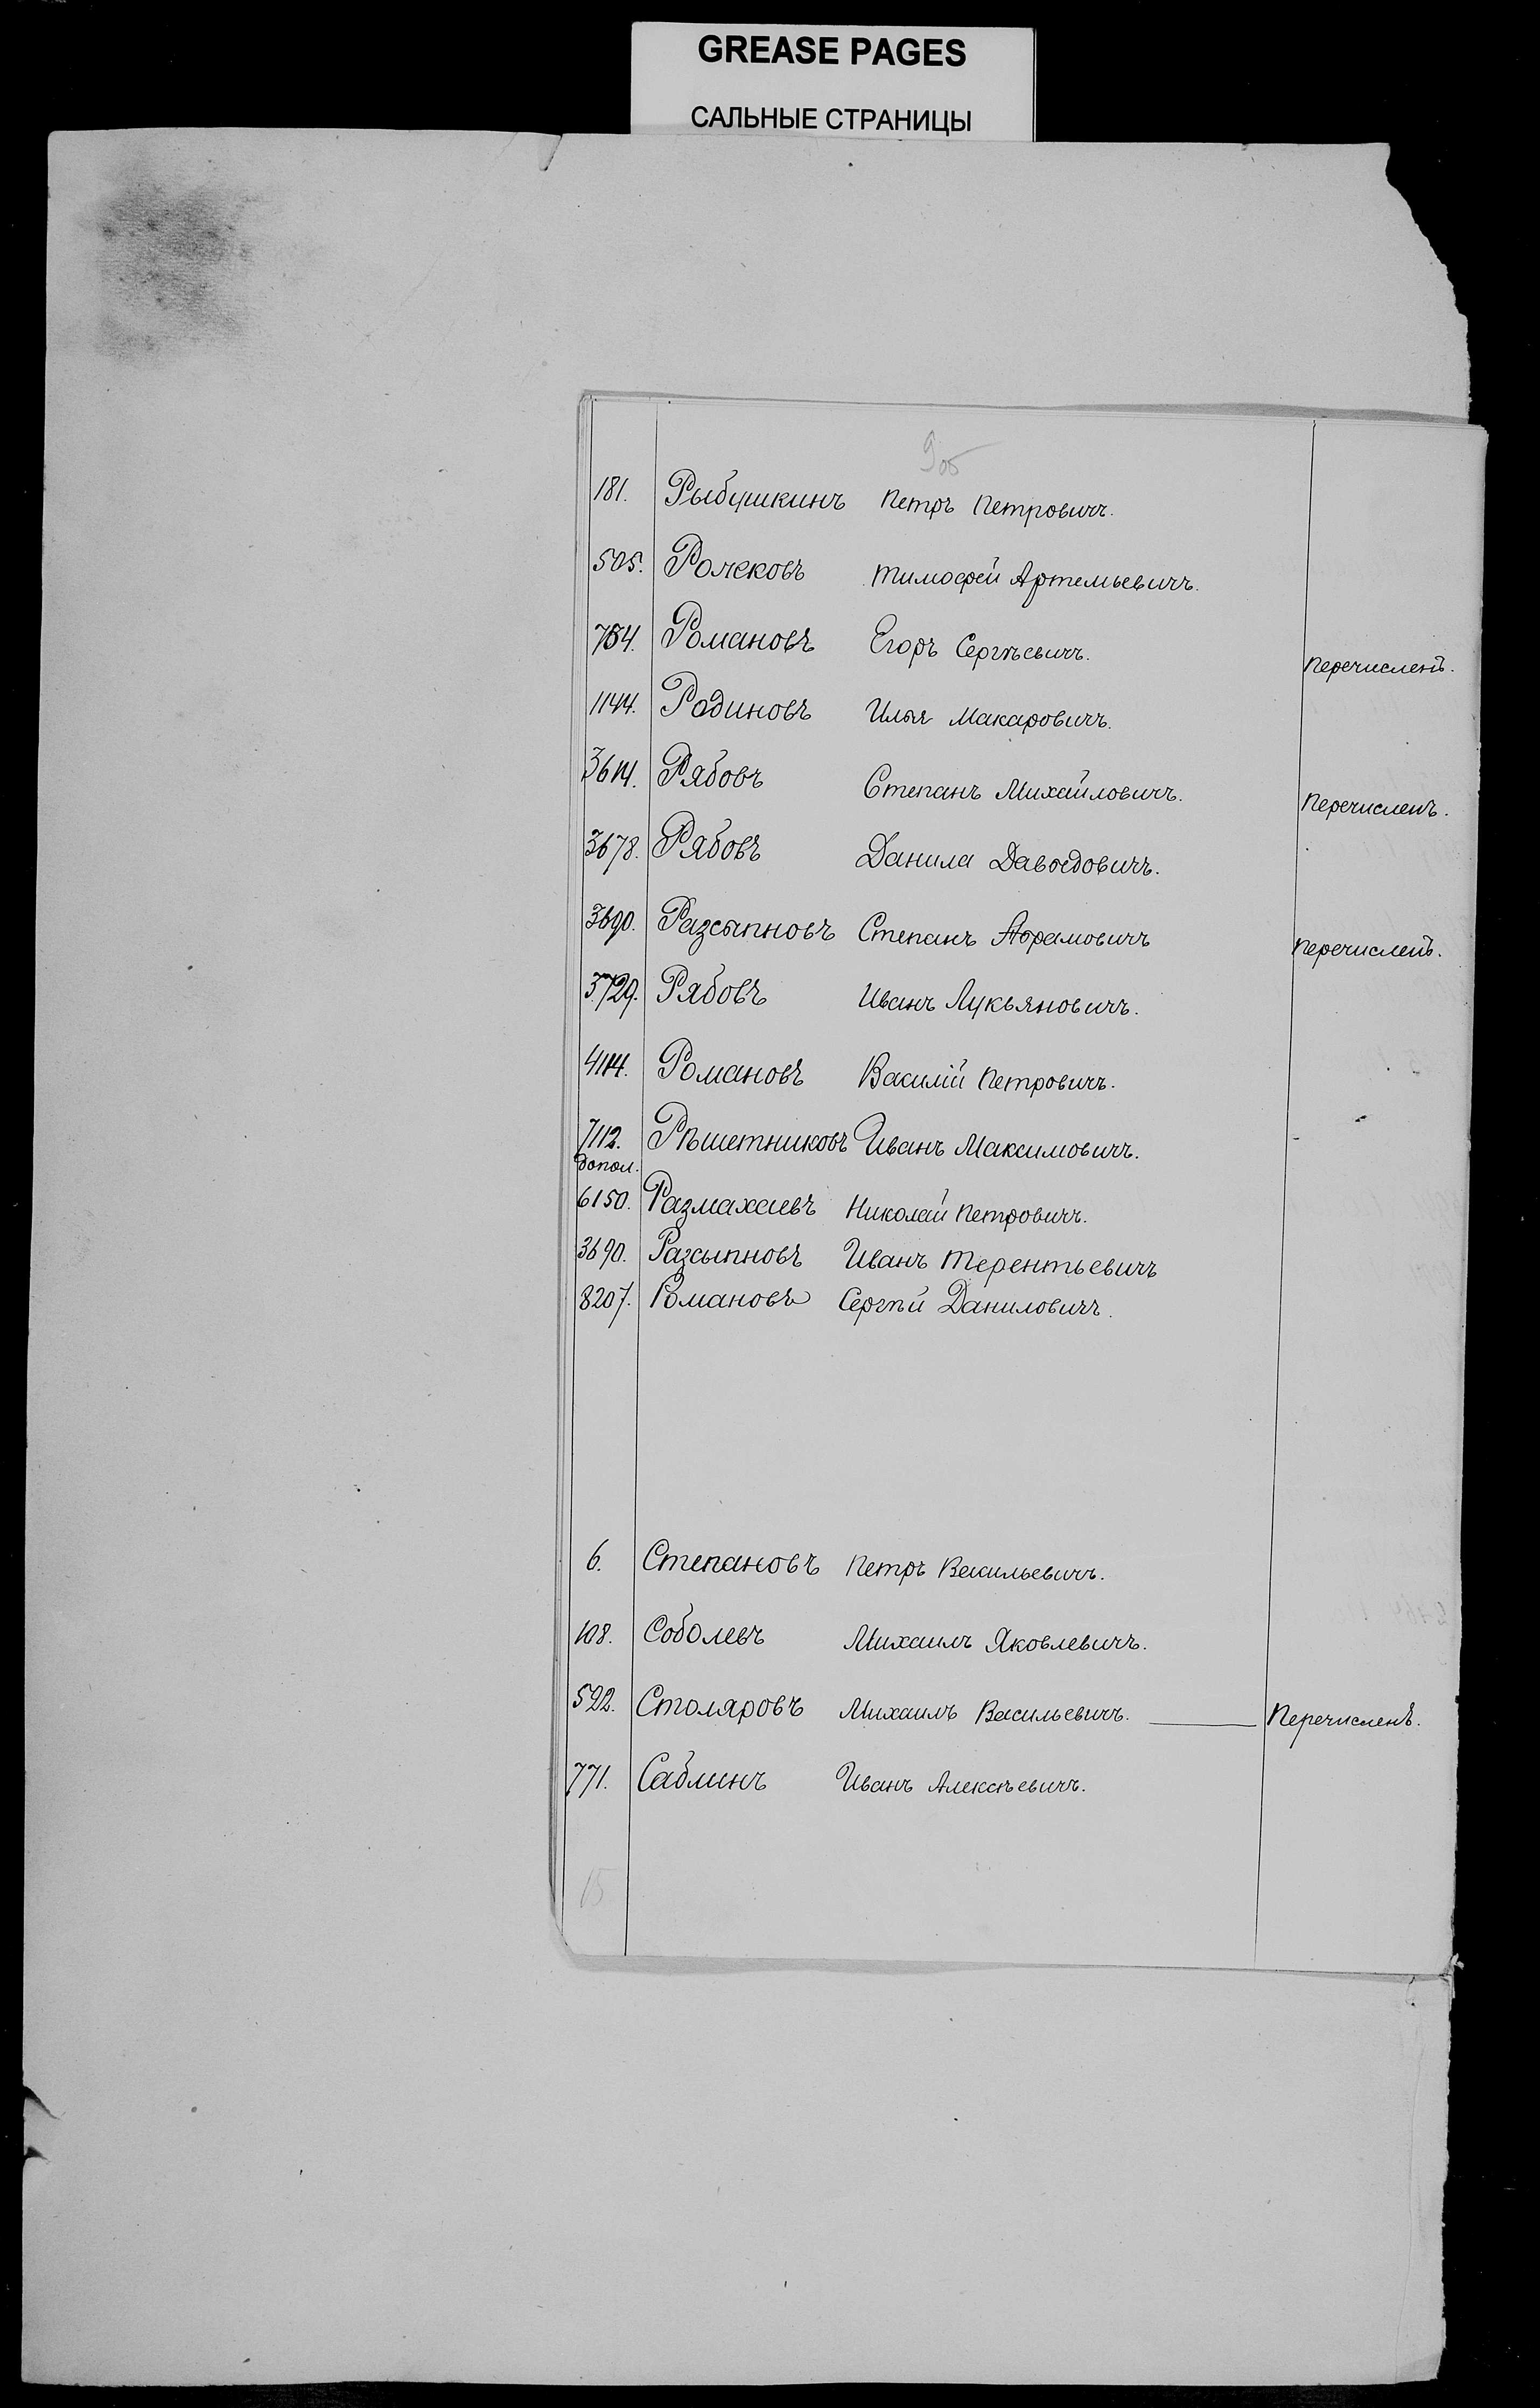 GREASE PAGES
САЛЬНЫЕ СТРАНИЦЫ
9 об
181. Рыбушкинъ Петръ Петровичъ.
505. Тимофей Артемьевичъ.
754. Романовъ Егоръ Сергѣевичъ. Перечисленъ.
1144. Родиновъ Илья Макаровичъ.
3614. Рябовъ Степанъ Михайловичъ. Перечисленъ.
3678. Рябовъ Данила Давыдовичъ.
3690. Разсыпновъ Степанъ Абрамовичъ Перечисленъ.
3729. Рябовъ Иванъ Лукьяновичъ.
4114. Романовъ Василій Петровичъ.
7112. Рѣшетниковъ Иванъ Максимовичъ.
допол.
6150. Размахаевъ Николай Петровичъ.
3690. Разсыпновъ Иванъ Терентьевичъ
8207. Романовъ Сергѣй Даниловичъ.
6. Степановъ Петръ Васильевичъ.
108. Соболевъ Михаилъ Яковлевичъ.
592. Столяровъ Михаилъ Васильевичъ. Перечисленъ.
771. Саблинъ Иванъ Алексѣевичъ.
15